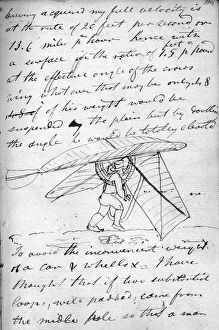 having acquired my full velocity is
at the rate of 20 feet per second or
13.6 mile pr hour hence with
a surface in the ratio of 1.8 pr
at the effective angle of the crows
wing what ever that may be only
of his weight would be
suspended in the plain but by doubling
the angle he would be totally elevated
To avoid the inconvenient weight
of a car & wheels &c I have
thought that if two substantial
loops, well padded, came from
the middle pole so that a man